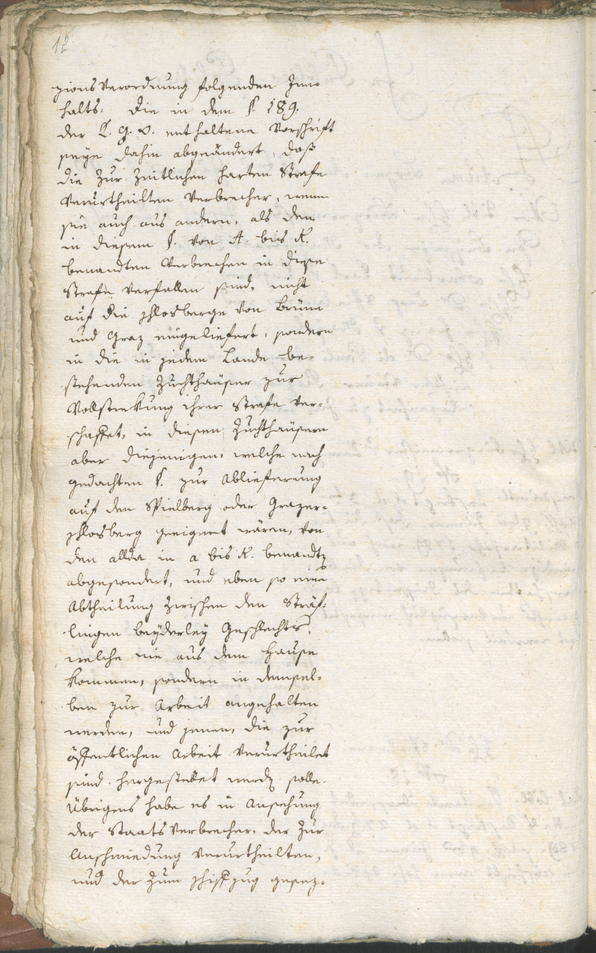 12
zionsVerordnung folgenden Inn-
halts. Die in dem §. 189.
der C. G. O. enthaltene Vorschrift
seye dahin abgeändert, daß
die zur zeitlichen harten Strafe
Verurtheilten Verbrecher, wenn
sie auch aus andern, als den
in diesem §. von A. bis K.
benandten Verbrechen in diese
Strafe verfallen sind, nicht
auf die schlosberge von Brünn
und Graz eingeliefert, sondern
in die in jedem Lande be-
stehenden Zuchthäuser zur
Vollstrekung ihrer Strafe ver-
schaffet, in diesen Zuchthäusern
aber diejenigen, welche nach
gedachten §. zur Ablieferung
auf den Spielberg oder Grazer-
schlosberg geeignet wären, von
den allda in a bis K. benandtn
abgesondert, und eben so eine
Abtheilung zwischen den Sträf-
lingen beyderley Geschlechts,
welche nie aus dem Hause
kommen, sondern in demsel-
ben zur Arbeit angehalten
werden, und jenen, die zur
öffentlichen Arbeit Verurtheilet
sind hergestellet werdn solle.
Übrigens habe es in Ansehung
der StaatsVerbrecher, der zur
Anschmiedung verurtheilten,
und der zum schiffzug geeig-